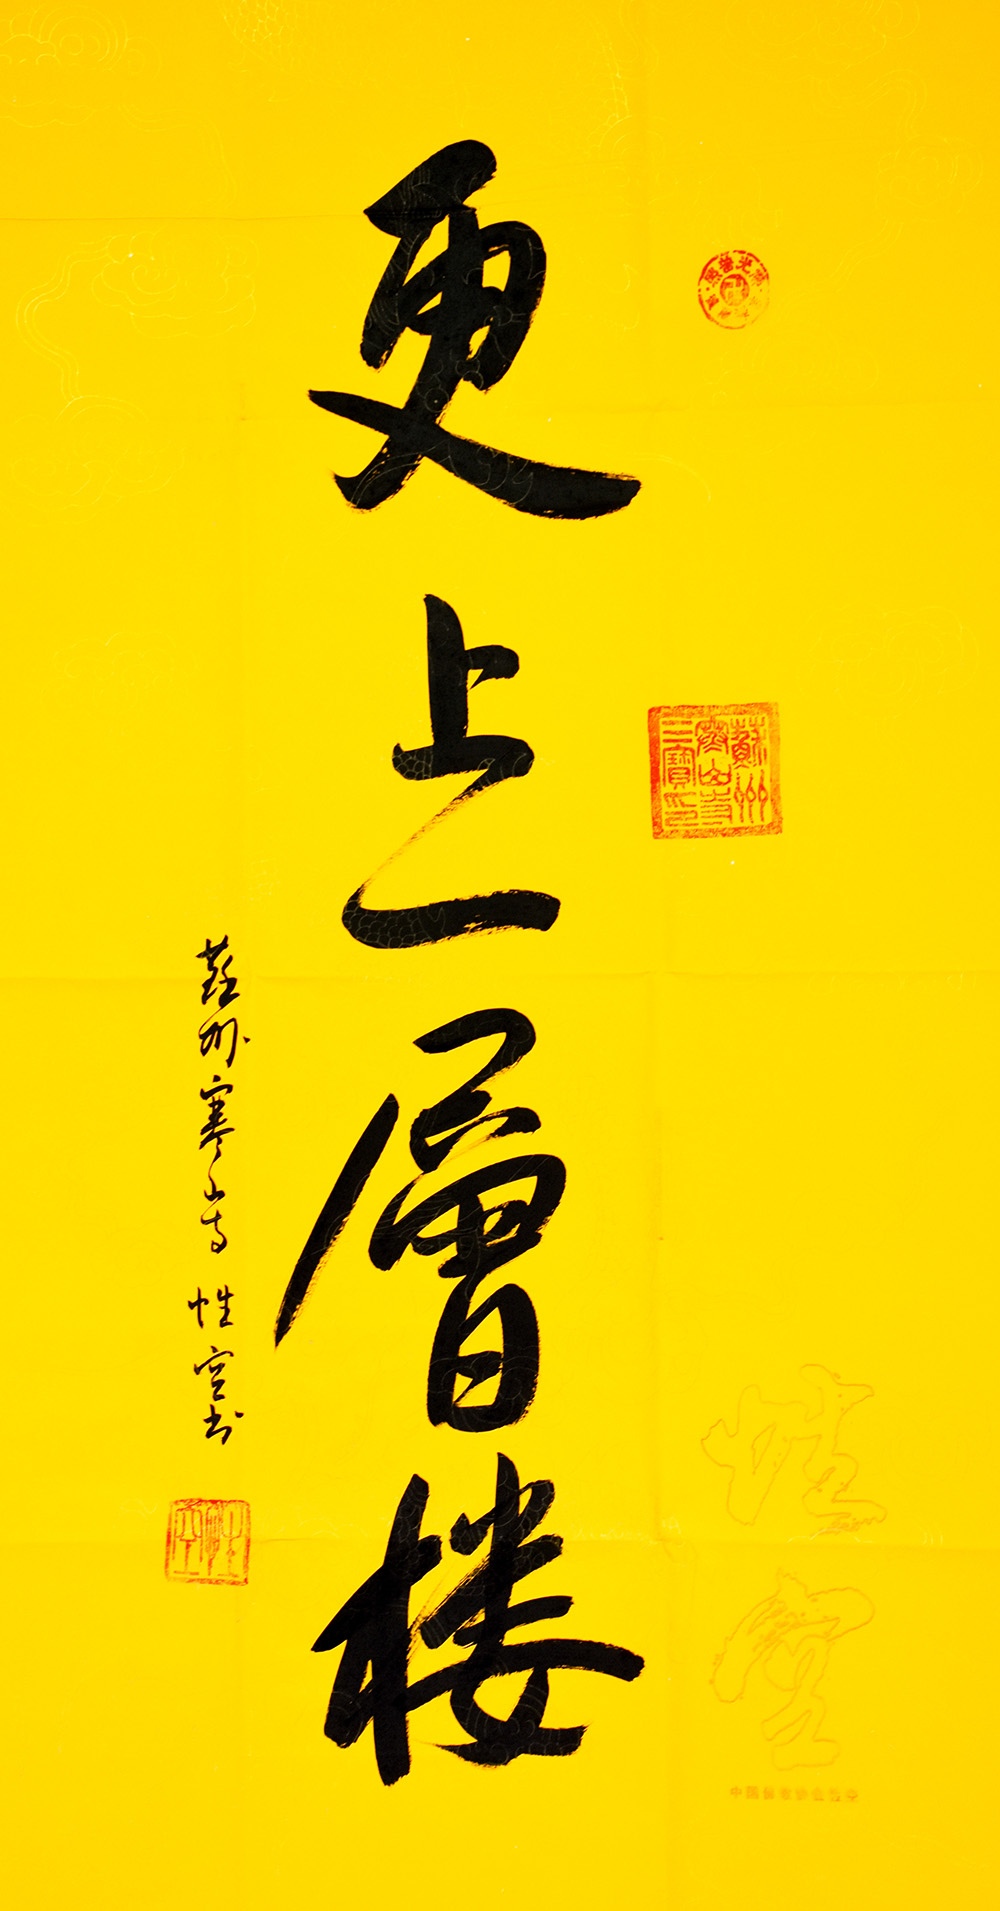 更上一層樓
蘇州寒山寺 性空书
蘇州
寒山寺
三寶印
性空
性空